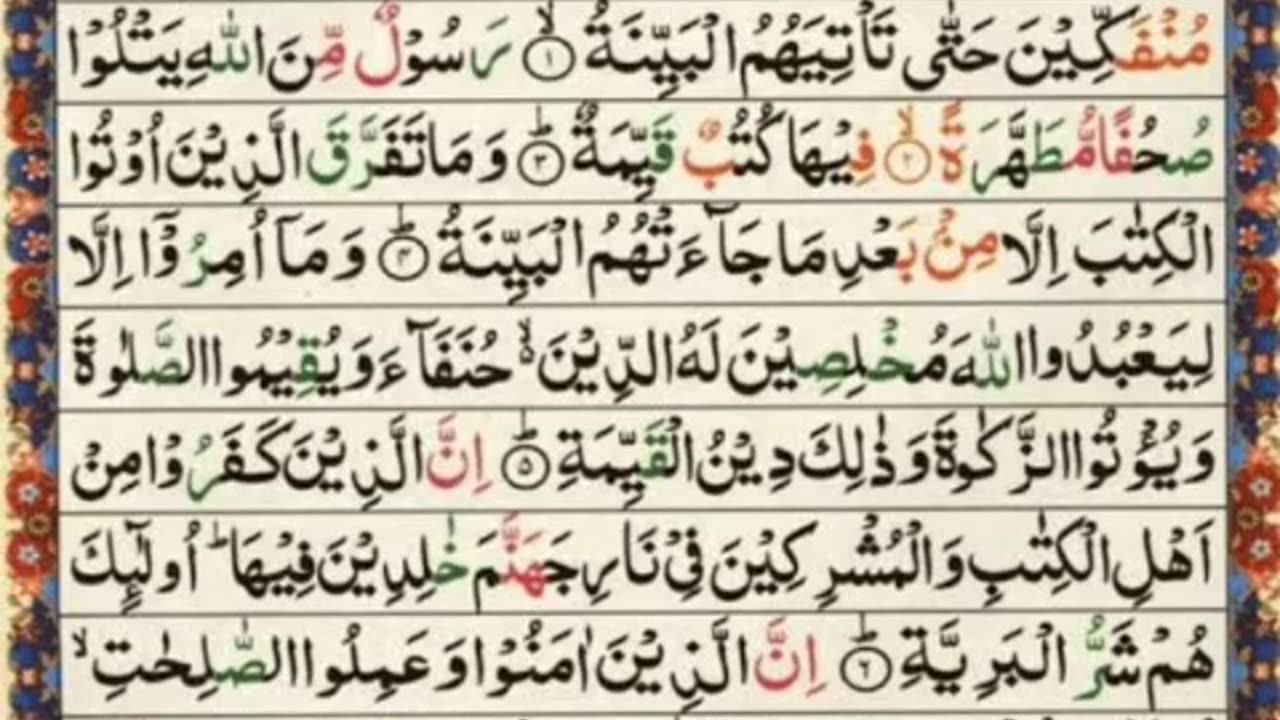 مُنْفَكِّيْنَ حَتّٰى تَاْتِيَهُمُ الْبَيِّنَةُ ۙ﴿۱﴾ رَسُوْلٌ مِّنَ اللّٰهِ يَتْلُوْا
صُحُفًا مُّطَهَّرَةً ۙ﴿۲﴾ فِيْهَا كُتُبٌ قَيِّمَةٌ ؕ﴿۳﴾ وَ مَا تَفَرَّقَ الَّذِيْنَ اُوْتُوا
الْكِتٰبَ اِلَّا مِنْۢ بَعْدِ مَا جَآءَتْهُمُ الْبَيِّنَةُ ؕ﴿۴﴾ وَ مَاۤ اُمِرُوْۤا اِلَّا
لِيَعْبُدُوا اللّٰهَ مُخْلِصِيْنَ لَهُ الدِّيْنَ ۙ۬ حُنَفَآءَ وَ يُقِيْمُوا الصَّلٰوةَ
وَ يُؤْتُوا الزَّكٰوةَ وَ ذٰلِكَ دِيْنُ الْقَيِّمَةِ ؕ﴿۵﴾ اِنَّ الَّذِيْنَ كَفَرُوْا مِنْ
اَهْلِ الْكِتٰبِ وَ الْمُشْرِكِيْنَ فِيْ نَارِ جَهَنَّمَ خٰلِدِيْنَ فِيْهَا ؕ اُولٰٓئِكَ
هُمْ شَرُّ الْبَرِيَّةِ ؕ﴿۶﴾ اِنَّ الَّذِيْنَ اٰمَنُوْا وَ عَمِلُوا الصّٰلِحٰتِ ۙ